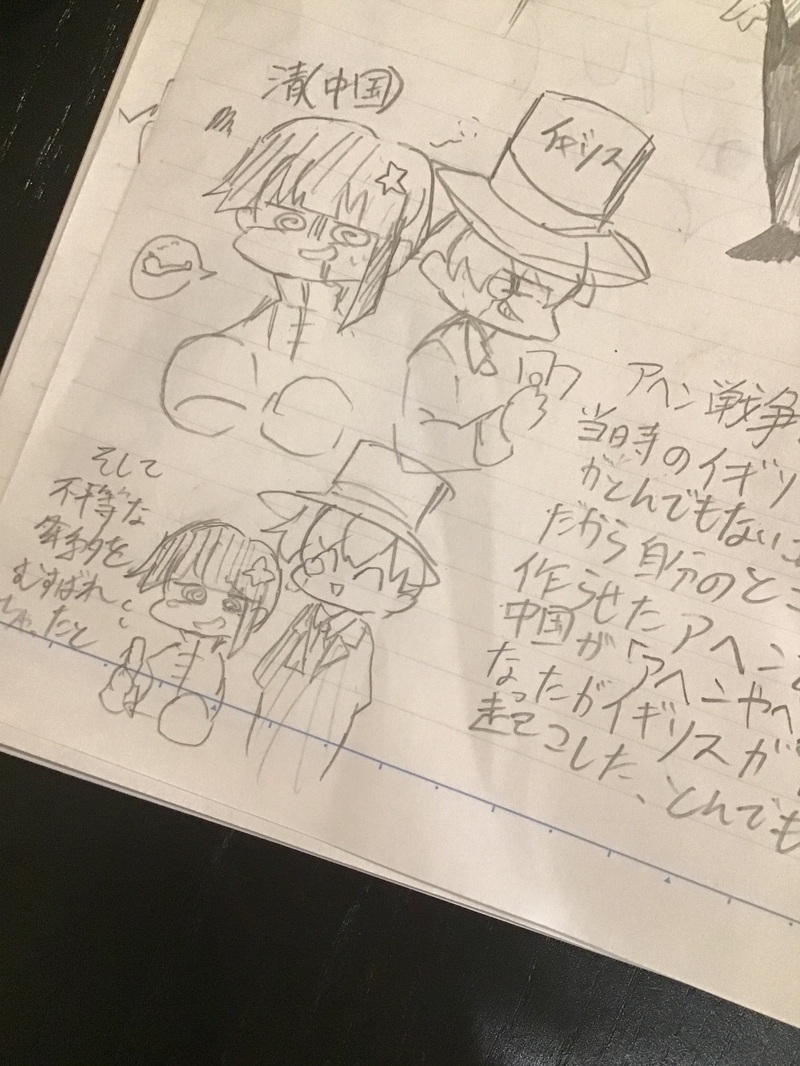 清(中国)
イギリス
アヘン戦争
当時のイギリ
がとんでもないこ
だから自分のとこ
作らせたアヘン
中国が「アヘンやべ
なったがイギリスが
起こした、とんでも
そして
不平等な
条約を
むすばれ
ちゃったと